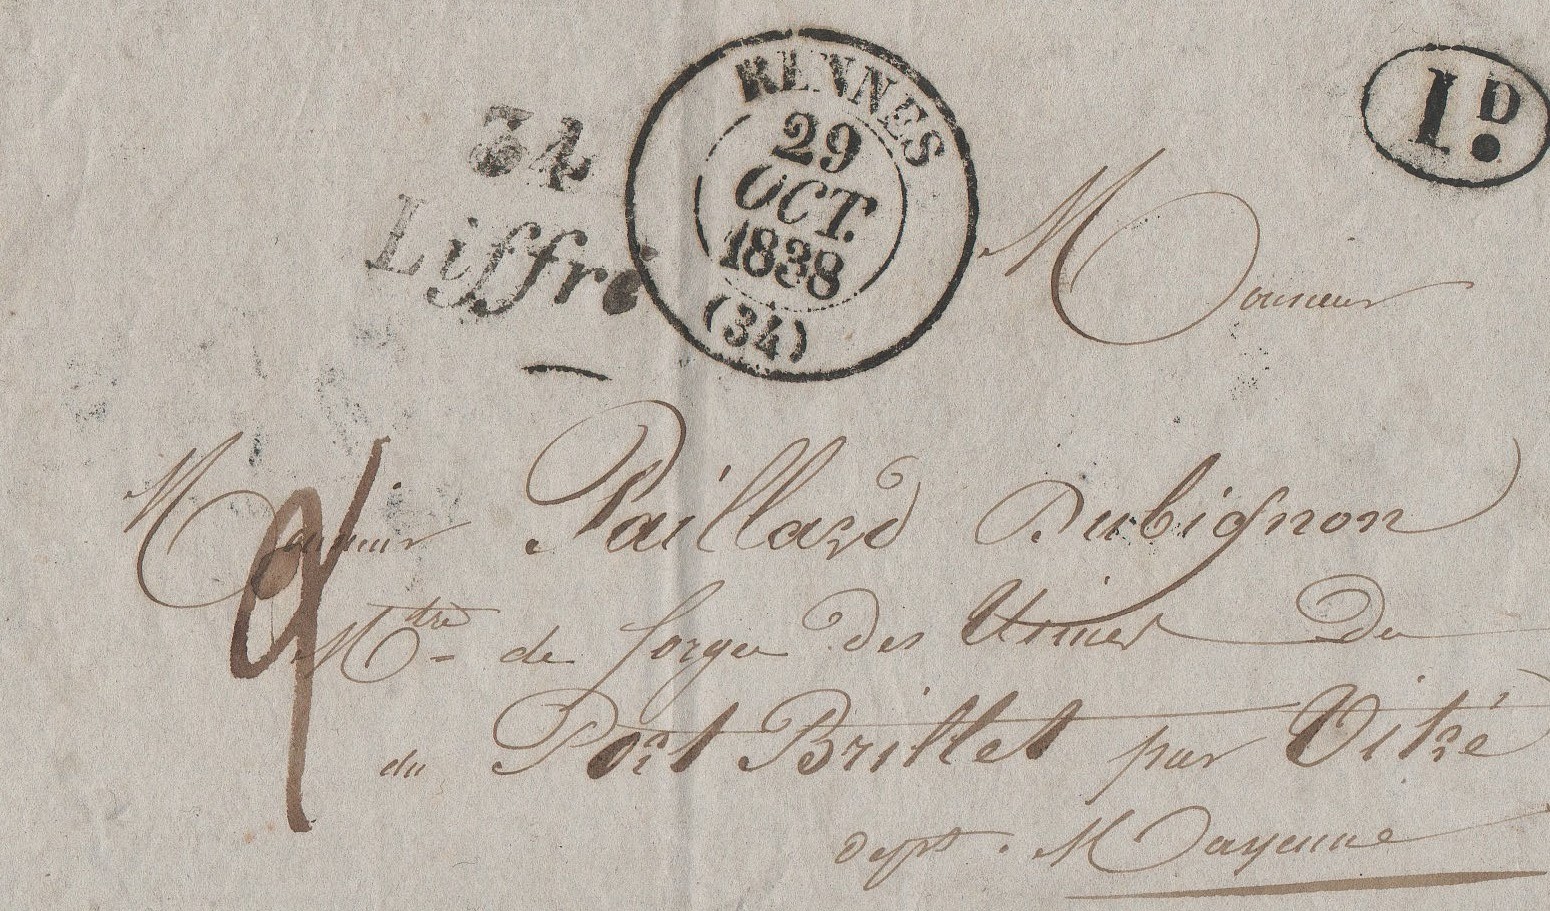 34
Liffré
RENNES
29
OCT.
1838
(34)
1D.
Monsieur
Monsieur Paillard Dubignon
Mtre de forges des Usines De
du Port Brillet par Vitré
dept. Mayenne